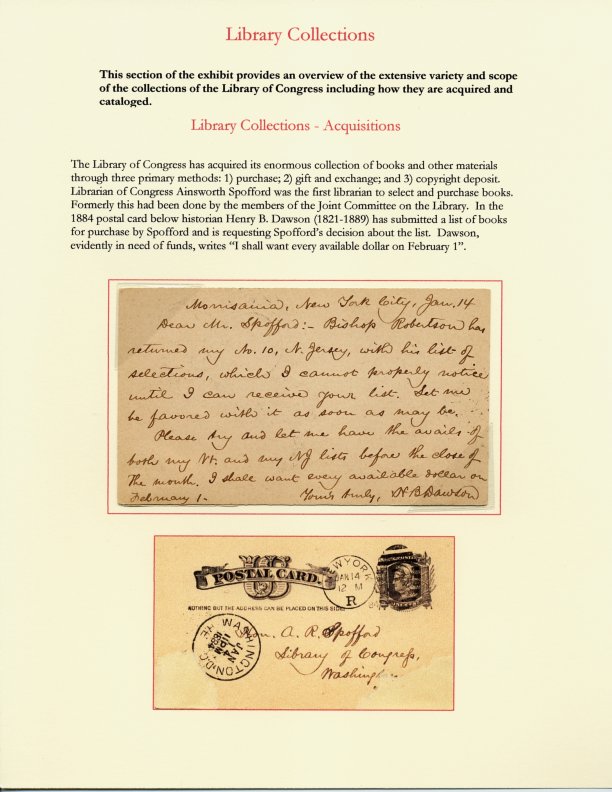 Library Collections
This section of the exhibit provides an overview of the extensive variety and scope
of the collections of the Library of Congress including how they are acquired and
cataloged.
Library Collections - Acquisitions
The Library of Congress has acquired its enormous collection of books and other materials
through three primary methods: 1) purchase; 2) gift and exchange; and 3) copyright deposit.
Librarian of Congress Ainsworth Spofford was the first librarian to select and purchase books.
Formerly this had been done by the members of the Joint Committee on the Library. In the
1884 postal card below historian Henry B. Dawson (1821-1889) has submitted a list of books
for purchase by Spofford and is requesting Spofford's decision about the list. Dawson,
evidently in need of funds, writes "I shall want every available dollar on February 1".
Morrisania, New York City, Jan. 14
Dear Mr. Spofford:- Bishop Robertson has
returned my No. 10, N. Jersey, with his list of
selections, which I cannot properly notice
until I can receive your list. Let me
be favored with it as soon as may be.
Please try and let me have the avails of
both my Vt. and my NJ lists before the close of
the month. I shall want every available dollar on
February 1. Yours truly, H B Dawson
U S
POSTAL CARD.
NOTHING BUT THE ADDRESS CAN BE PLACED ON THIS SIDE
W YORK
JAN 14
12 M
R
WASHINGTON, D.C.
JAN
14
11 PM
1884
Hon. A. R. Spofford
Library of Congress,